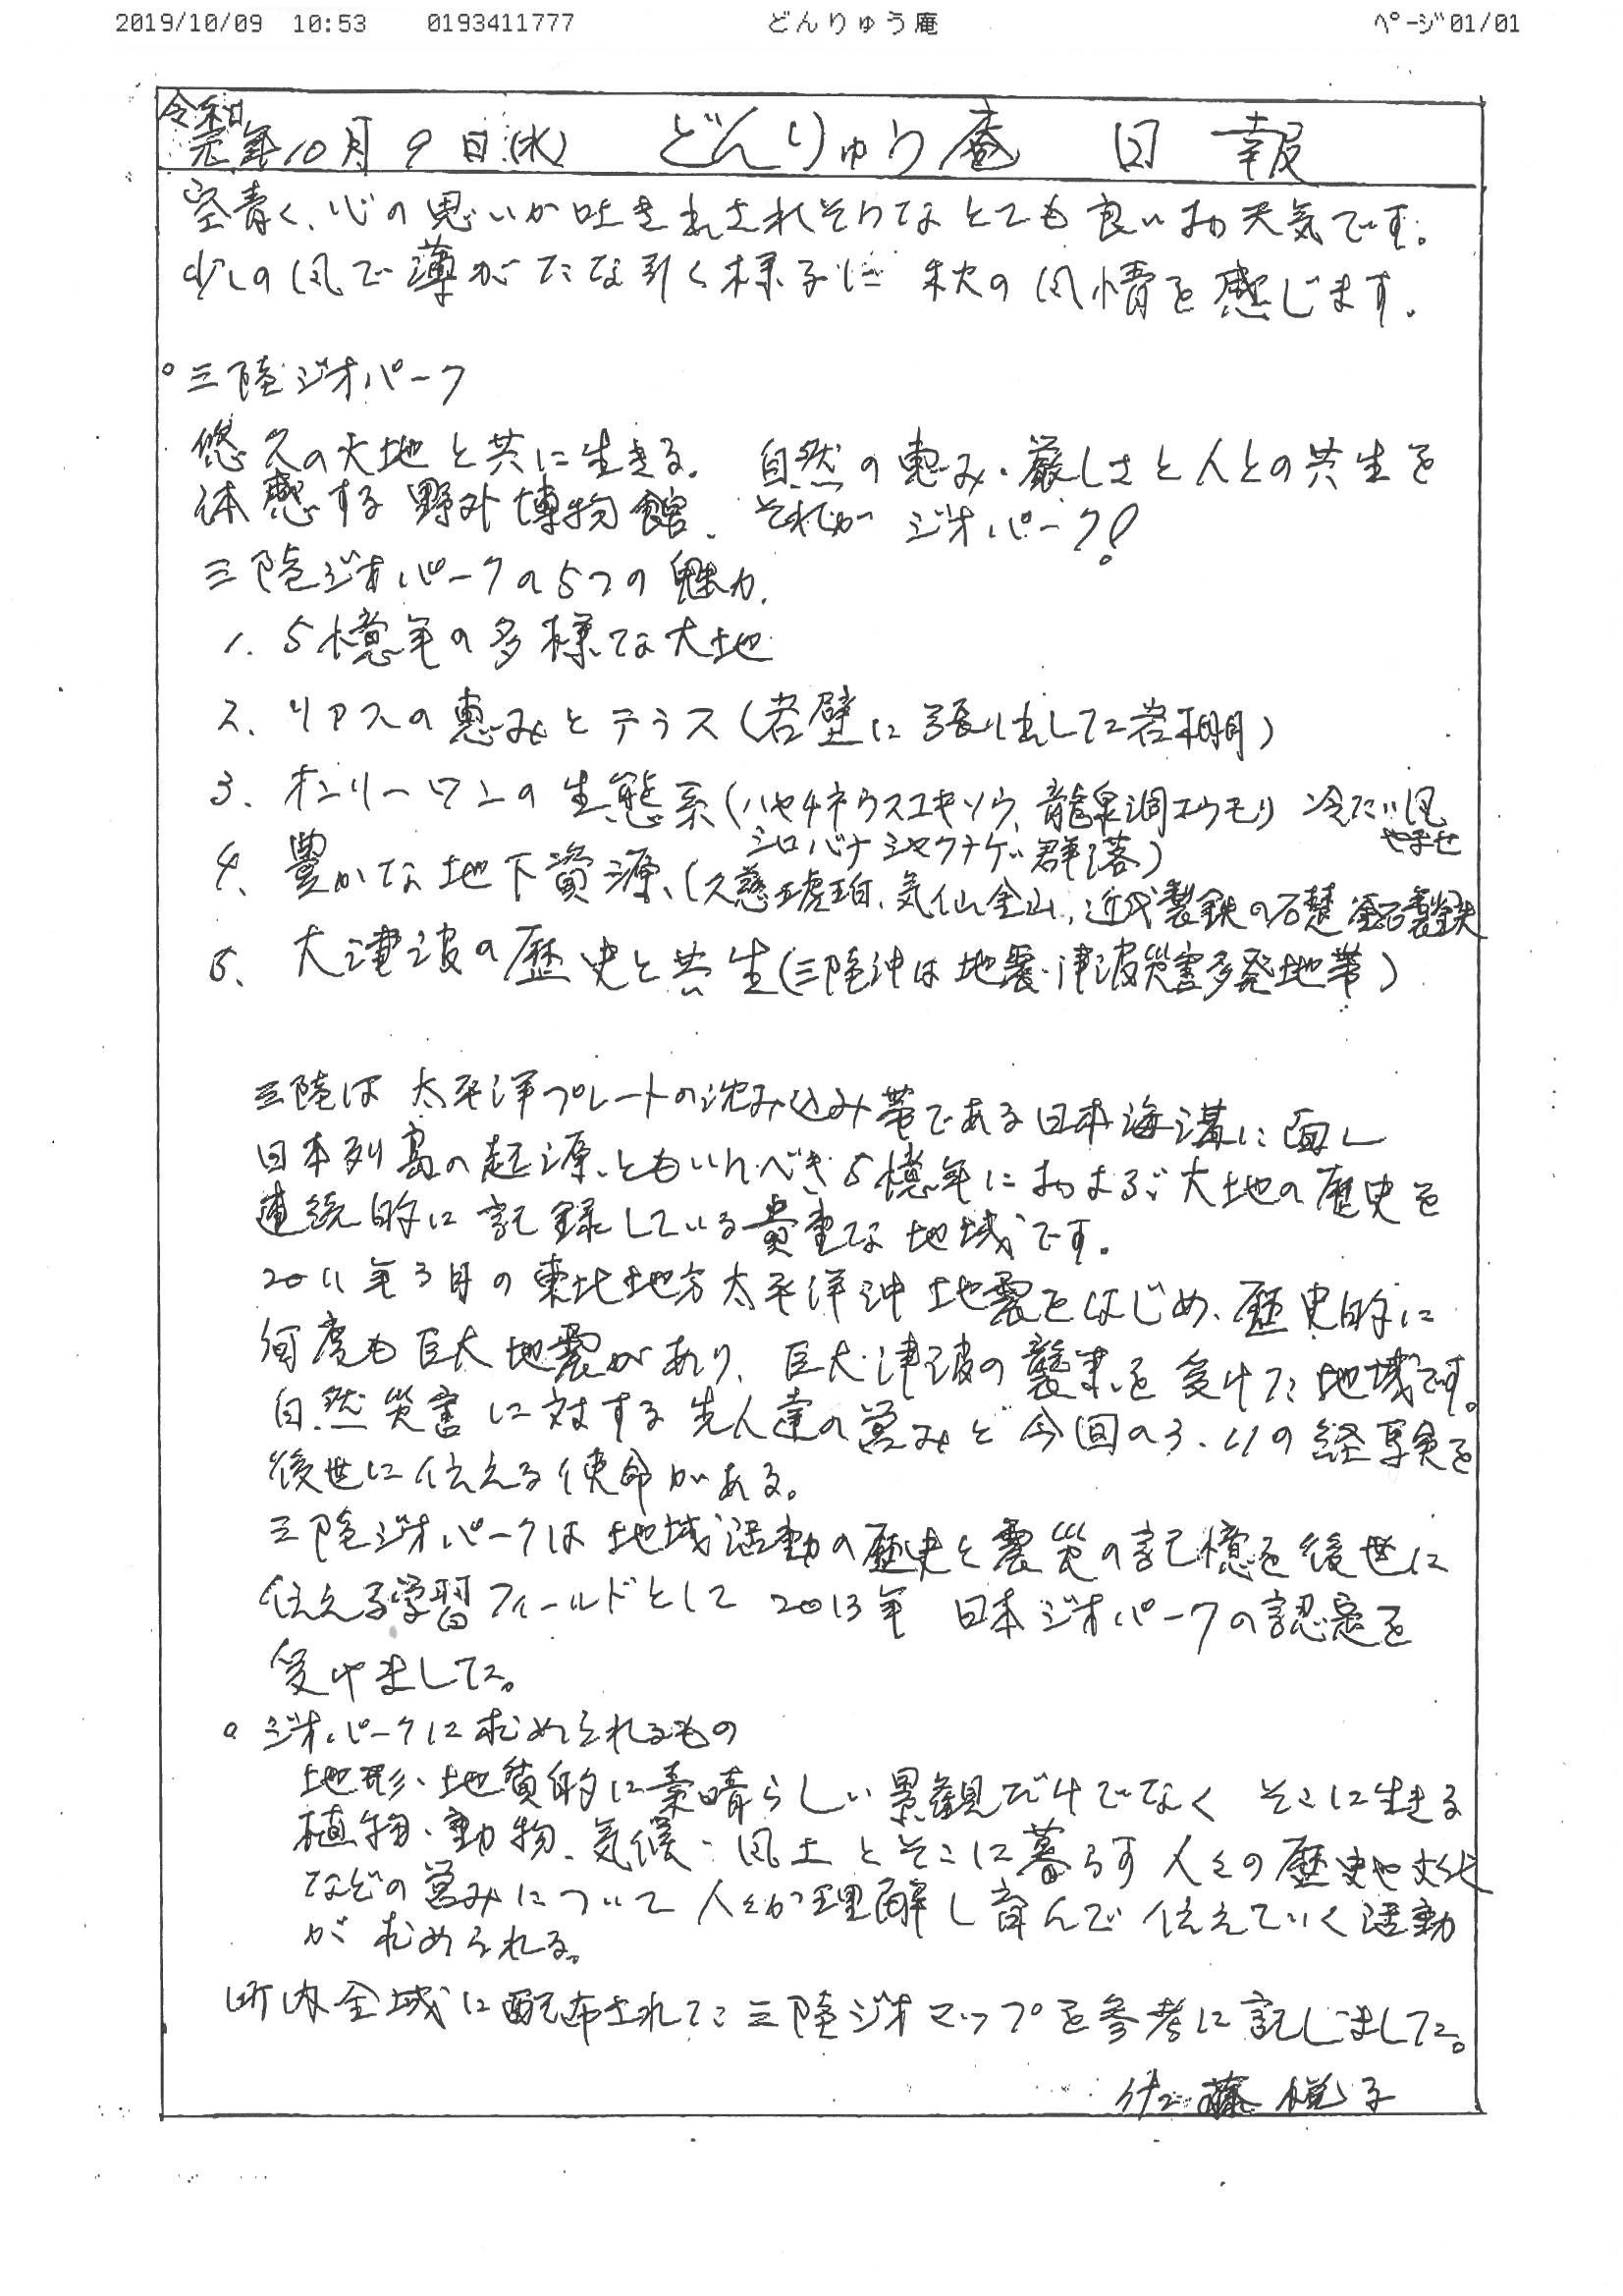 2019/10/09 10:53 0193411777 どんりゅう庵 ページ01/01
令和
元年10月9日(水) どんりゅう庵 日報
空青く、心の思いが吐きれそうなとても良いお天気です。
少しの風で薄がたな引く様子に秋の風情を感じます。
○三陸ジオパーク
悠久の大地と共に生きる。自然の恵み・厳しさと人との共生を
体感する野外博物館、それがジオパーク!
三陸ジオパークの5つの魅力、
1、5億年の多様な大地
2、リアスの恵みとテラス(岩壁に張り出した岩棚)
3、オンリーワンの生態系(ハヤチネウスユキソウ、龍泉洞コウモリ 冷たい風
シロバナシャクナゲ群落) やませ
4、豊かな地下資源、(久慈琥珀、気仙金山、近代製鉄の石礎 釜石製鉄
5、大津波の歴史と共生(三陸沖は地震・津波災害多発地帯)
三陸は太平洋プレートの沈み込み帯である日本海溝に面し
日本列島の起源ともいうべき5億年におよぶ大地の歴史を
連続的に記録している貴重な地域です。
2011年3月の東北地方太平洋沖地震をはじめ、歴史的に
何度も巨大地震があり、巨大津波の襲来を受けた地域です。
自然災害に対する先人達の営みと今回の3.11の経験を
後世に伝える使命がある。
三陸ジオパークは地域活動の歴史と震災の記憶を後世に
伝える学習フィールドとして2013年 日本ジオパークの認定を
受けました。
○ジオパークに求められるもの
地形、地質的に素晴らしい景観だけでなく そこに生きる
植物、動物、気候・風土とそこに暮らす人々の歴史や文化
などの営みについて人々が理解し育んで伝えていく活動
が求められる。
町内全域に配布された三陸ジオマップを参考に記しました。
佐藤悦子